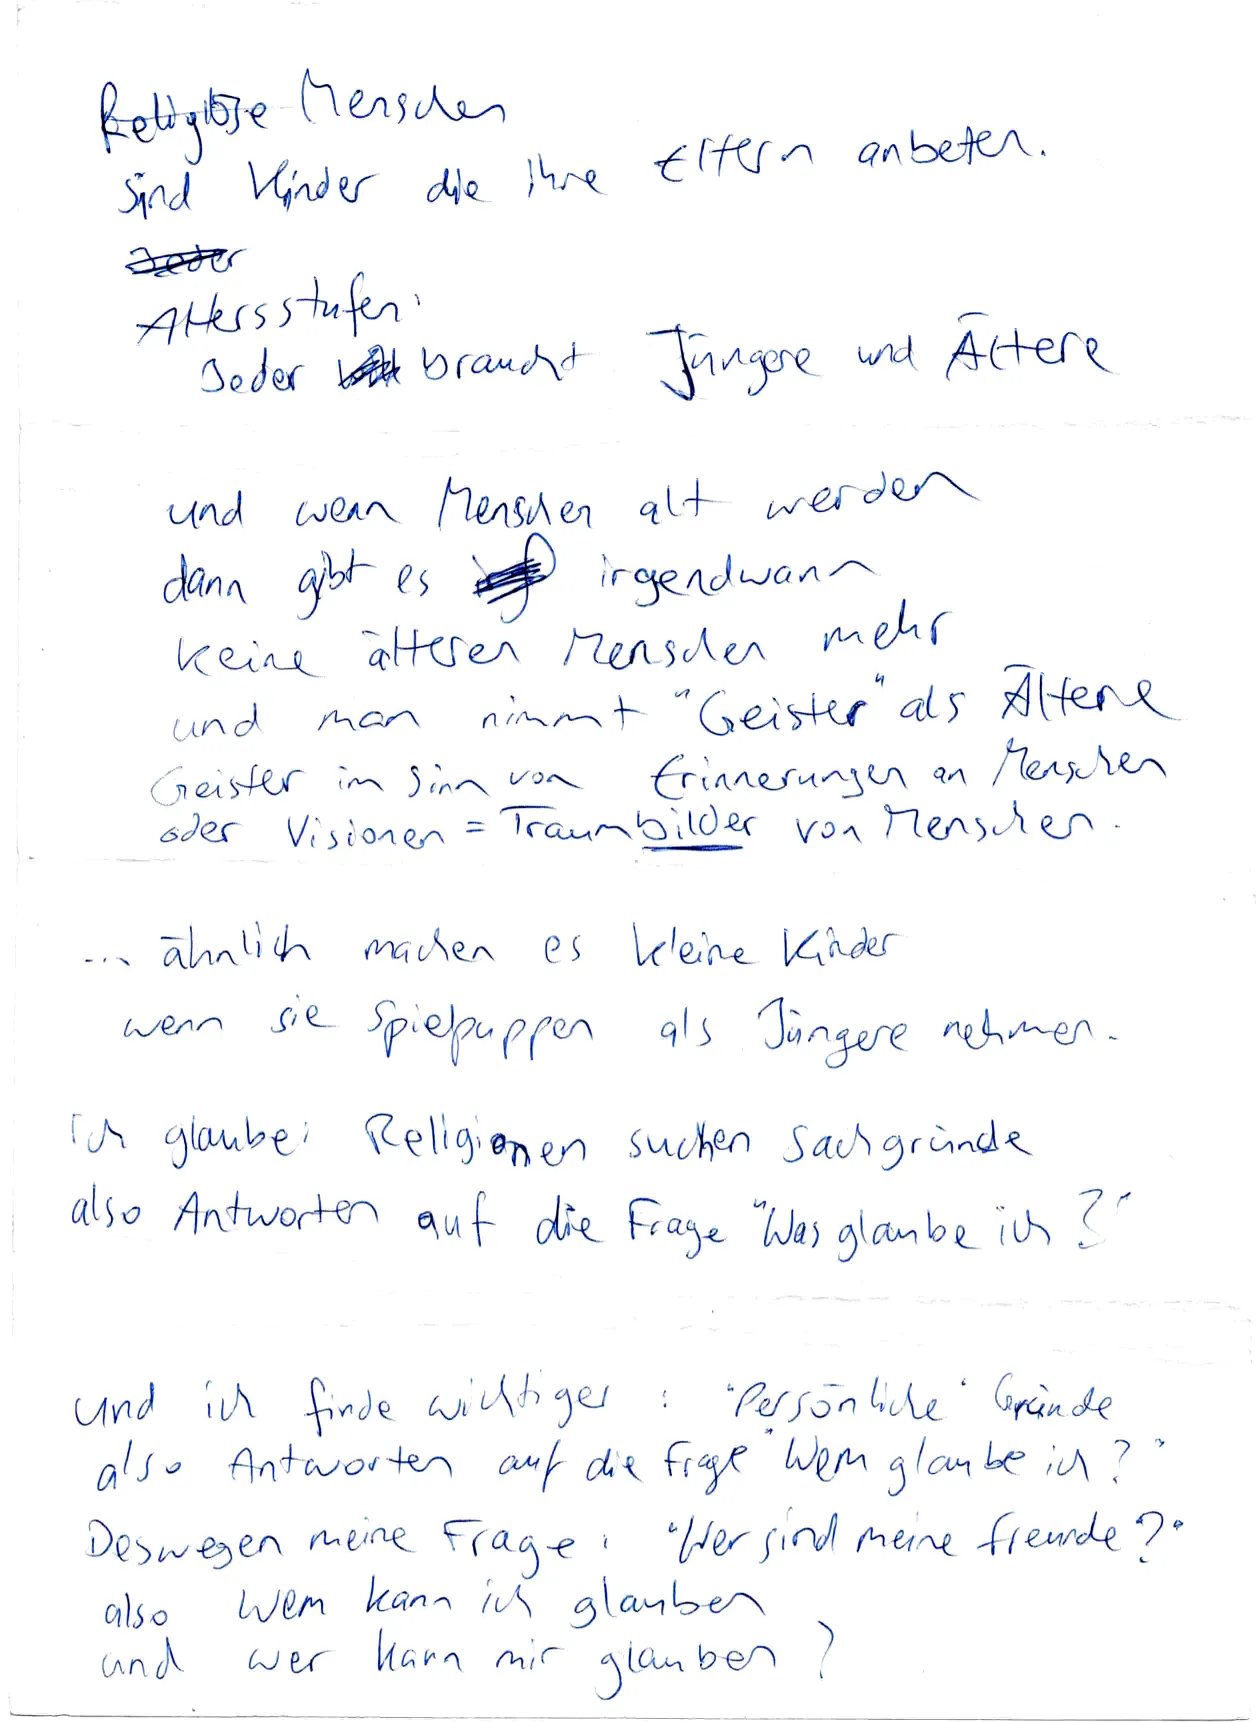 Religiöse Menschen
sind Kinder die ihre Eltern anbeten.
Jeder
Altersstufen:
Jeder braucht Jüngere und Ältere
und wenn Menschen alt werden
dann gibt es irgendwann
keine älteren Menschen mehr
und man nimmt "Geister" als Ältere
Geister im Sinn von Erinnerungen an Menschen
oder Visionen = Traumbilder von Menschen.
... ähnlich machen es kleine Kinder
wenn sie Spielpuppen als Jüngere nehmen.
Ich glaube: Religionen suchen Sachgründe
also Antworten auf die Frage "Was glaube ich?"
und ich finde wichtiger: "Persönliche" Gründe
also Antworten auf die Frage "Wem glaube ich?"
Deswegen meine Frage: "Wer sind meine Freunde?"
also wem kann ich glauben
und wer kann mir glauben?